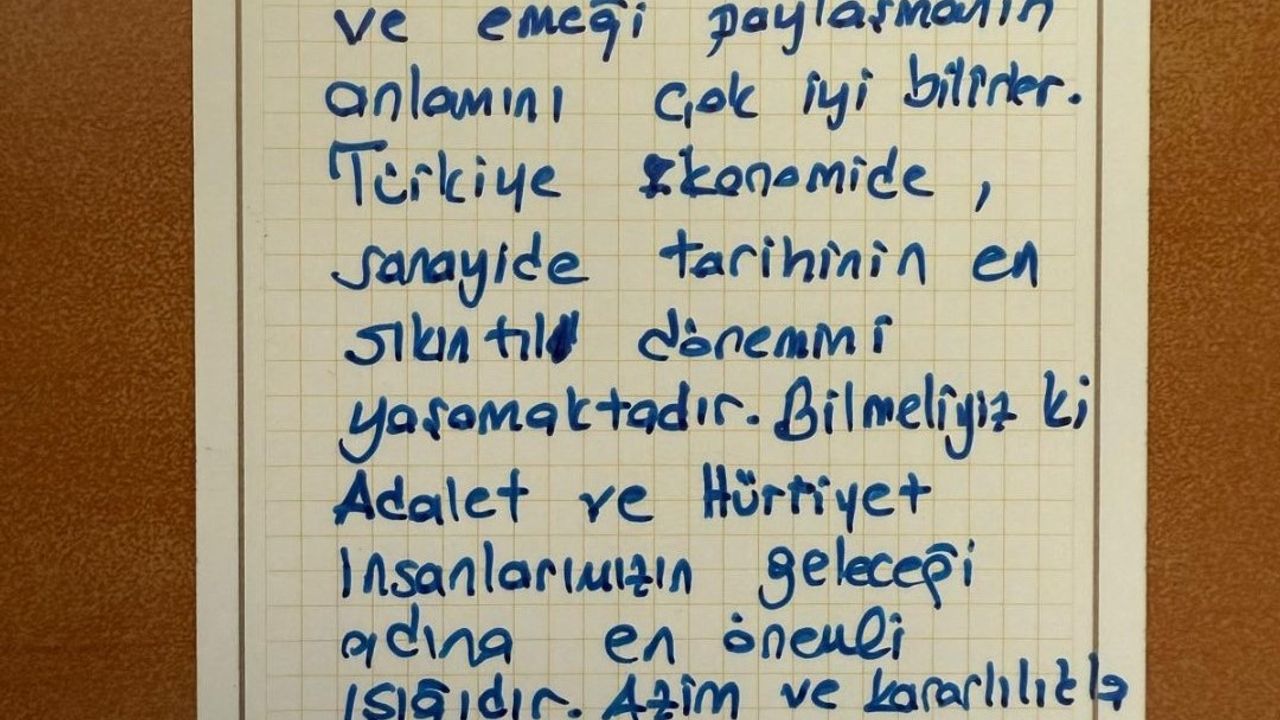 ve emeği paylaşmanın
anlamını çok iyi bilirler.
Türkiye ekonomide,
sanayide tarihinin en
sıkıntılı dönemmi
yaşamaktadır. Bilmeliyiz ki
Adalet ve Hürriyet
Insanlarımızın geleceği
adına en önemli
ışığıdır. Azim ve kararlılıkla